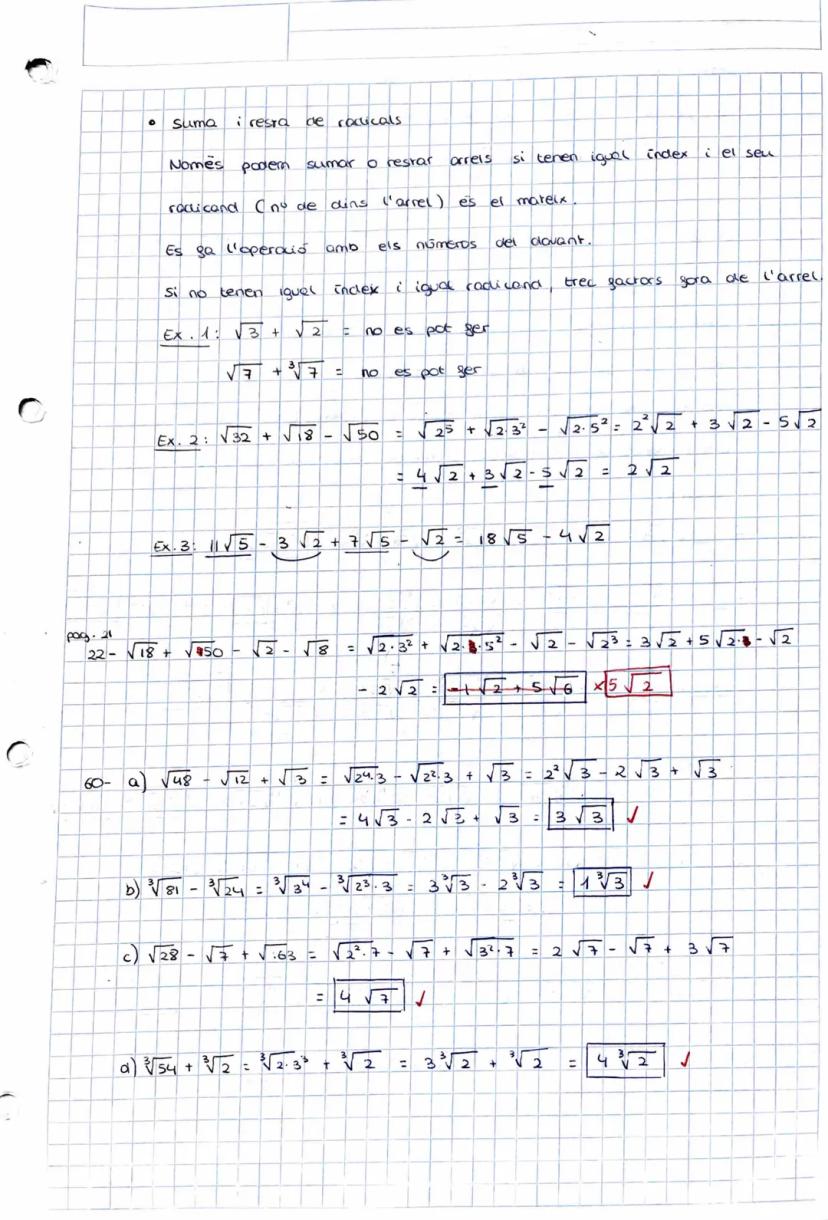 • Suma i resta de radicals
Només podem sumar o restar arrels si tenen igual índex i el seu
radicand (nº de dins l'arrel) és el mateix.
Es fa l'operació amb els números del davant.
Si no tenen igual índex i igual radicand, trec factors fora de l'arrel.
Ex. 1: √3 + √2 = no es pot fer
√7 + ³√7 = no es pot fer
Ex. 2: √32 + √18 - √50 = √2⁵ + √2·3² - √2·5² = 2²√2 + 3√2 - 5√2
= 4√2 + 3√2 - 5√2 = 2√2
Ex. 3: 11√5 - 3√2 + 7√5 - √2 = 18√5 - 4√2
pag. 21
22- √18 + √50 - √2 - √8 = √2·3² + √2·5² - √2 - √2³ = 3√2 + 5√2 - √2
- 2√2 = -1√2 + 5√6 × 5√2
60- a) √48 - √12 + √3 = √2⁴·3 - √2²·3 + √3 = 2²√3 - 2√3 + √3
= 4√3 - 2√3 + √3 = 3√3 ✓
b) ³√81 - ³√24 = ³√3⁴ - ³√2³·3 = 3³√3 - 2³√3 = 1³√3 ✓
c) √28 - √7 + √63 = √2²·7 - √7 + √3²·7 = 2√7 - √7 + 3√7
= 4√7 ✓
d) ³√54 + ³√2 = ³√2·3³ + ³√2 = 3³√2 + ³√2 = 4³√2 ✓